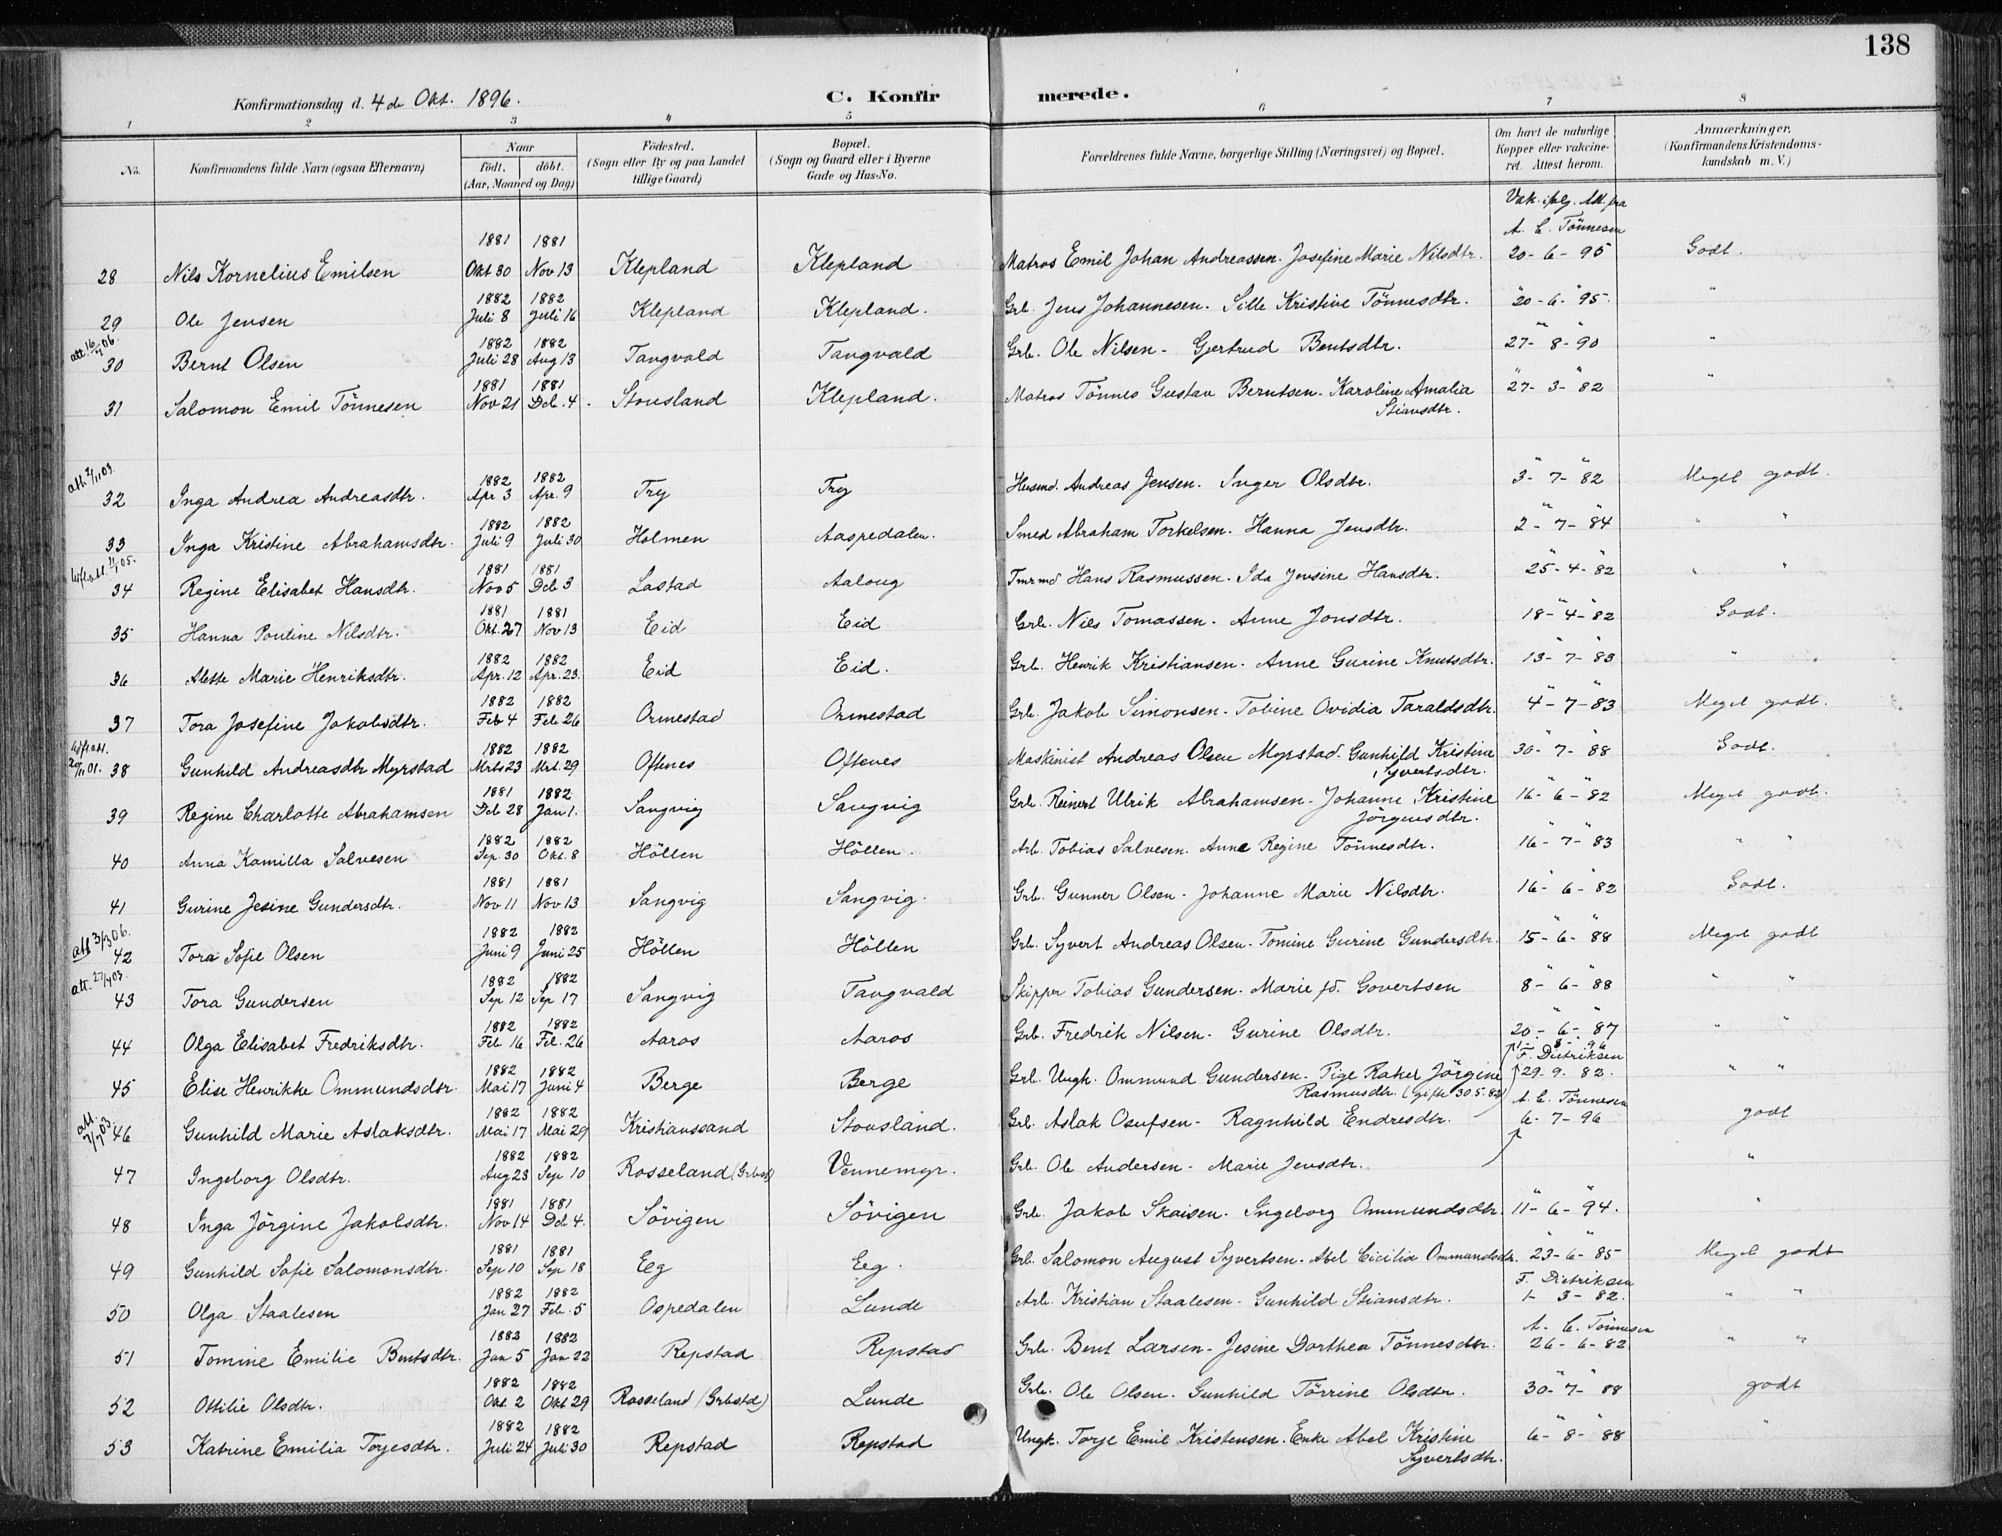 138
Konfirmationsdag d. 4de Okt. 1896.
C. Konfir
merede.
1 2 3 4 5 6 7 8
No. Konfirmandens fulde Navn (ogsaa Efternavn) Naar Födt. döbt. (Aar, Maaned og Dag) Födested. (Sogn eller By og paa Landet tillige Gaard) Bopæl. (Sogn og Gaard eller i Byerne Gade og Hus-No. Forældrenes fulde Navne, borgerlige Stilling (Næringsvei) og Bopæl. Om havt de naturlige Kopper eller vakcineret. Attest herom. Anmærkninger. (Konfirmandens Kristendomskundskab m. V.)
Vak. ifølg. Att. fra
A. C. Tönnesen
1881 1881
28 Nils Kornelius Emilsen Okt 30 Nov 13 Klepland Klepland Matros Emil Johan Andreassen. Josefine Marie Nilsdtr. 20-6-95 Godt.
1882 1882
29 Ole Jensen Juli 8 Juli 16 Klepland Klepland. Grb. Jens Johannesen. Sille Kristine Tönnesdtr. 20-6-95. "
att. 16/ 06.
1882 1882
30 Bernt Olsen Juli 28 Aug 13 Tangvald Tangvald Grb. Ole Nilsen- Gjertrud Bentsdtr. 27-8-90 "
1881 1881
31 Salomon Emil Tönnesen Nov 21 Dcb. 4. Stousland Klepland. Matros Tönnes Gustav Berntsen. Karoline Amalia 27-3-82 "
Stiansdtr.
att. 2/11 03.
1882 1882
32 Inga Andrea Andreasdtr. Apr 3 Apr. 9 Try Try Husmd. Andreas Jensen. Inger Olsdtr. 3-7-82 Meget godt.
1882 1882
33 Inga Kristine Abrahamsdtr. Juli 9 Juli 30 Holmen Aaspedalen. Smed Abraham Torkelsen. Hanna Jensdtr. 2-7-84 " "
1881 1881
34 Regine Elisabet Hansdtr. Nov 5 Dcb 3 Lastad Aaloug Tmrmd Hans Rasmussen. Ida Jensine Hansdtr. 25-4-82 " "
1881 1881
35 Hanna Pouline Nilsdtr. Okt. 27 Nov 13 Eid Eid Grb. Nils Tomassen. Anne Jonsdtr. 18-4-82 Godt.
1882 1882
36 Alette Marie Henriksdtr. Apr. 12 Apr. 23. Eid Eid. Grb. Henrik Kristiansen. Anne Gurine Knutsdtr. 13-7-83 "
1882 1882
37 Tora Josefine Jakobsdtr. Feb 4 Feb 26 Ormestad Ormestad Grb. Jakob Simonsen. Tobine Ovidia Taraldsdtr. 4-7-83 Meget godt.
1882 1882
38 Gunhild Andreasdtr Myrstad Mrts 23 Mrt. 29 Oftenes Oftenes Maskinist Andreas Olsen Myrstad. Gunhild Kristine 30-7-88 Godt.
Syvertsdtr.
1881 1882
39 Regine Charlotte Abrahamsen Dcb 28 Jan 1. Sangvig Sangvig Grb. Reinert Ulrik Abrahamsen. Johanne Kristine 16-6-82 Meget godt.
Jörgensdtr.
1882 1882
40 Anna Kamilla Salvesen Sep. 30 Okt. 8 Höllen Höllen. Arb. Tobias Salvesen. Anne Regine Tönnesdtr. 16-7-83 " "
1881 1881
41 Gurine Jesine Gundersdtr. Nov 11 Nov 13 Sangvig Sangvig. Grb. Gunner Olsen. Johanne Marie Nilsdtr. 16-6-82 Godt.
att 3/3 06.
1882 1882
42 Tora Sofie Olsen Juni 9 Juni 25 Höllen Höllen Grb. Syvert Andreas Olsen. Tomine Gurine Gundersdtr. 15-6-88 Meget godt
1882 1882
43 Tora Gundersen Sep 12 Sep 17 Sangvig Tangvald Skipper Tobias Gundersen. Marie fd. Govertsen 8-6-88 " "
1882 1882
44 Olga Elisabet Fredriksdtr. Feb 16 Feb. 26 Aaros Aaros Grb. Fredrik Nilsen. Gurine Olsdtr. 20-6-87 " "
F. Dietriksen
1882 1882
45 Elise Henrikke Ommundsdtr. Mai 17 Juni 4 Berge Berge Grb. Ungk. Ommund Gundersen. Pige Rakel Jörgine 29. 9. 82. " "
Rasmusdtr. (gifte 30.5.82) A. C. Tönnesen
1882 1882
46 Gunhild Marie Aslaksdtr. Mai 17 Mai 29 Kristianssand Stousland. Grb. Aslak Osufsen- Ragnhild Endresdtr. 6-7-96 godt
1882 1882
47 Ingeborg Olsdtr. Aug 23 Sep 10 Rosseland (Grbst) Vennemyr. Grb. Ole Andersen- Marie Jensdtr. "
1881 1881
48 Inga Jörgine Jakobsdtr. Nov 14 Dcb 4. Sövigen Sövigen Grb. Jakob Skaisen. Ingeborg Ommundsdtr. 11-6-94. "
1881 1881
49 Gunhild Sofie Salomonsdtr. Sep 10 Sep 18 Eeg Eeg. Grb. Salomon August Syvertsen. Abel Cicilia Ommundsdtr. 23-6-85 Meget godt
F. Dietriksen
1882 1882
50 Olga Staalesen Jan 27 Feb. 5 Ospedalen Lunde Arb. Kristian Staalesen. Gunhild Stiansdtr. 1- 3-82. " "
A. C. Tönnesen
1882 1882
51 Tomine Emilie Bentsdtr. Jan 5 Jan 22 Repstad Repstad Grb. Bent Larsen. Jesine Dorthea Tönnesdtr. 26-6-82 " "
1882 1882
52 Ottilie Olsdtr. Okt 2 Okt 29 Rosseland (Grbstd) Lunde Grb. Ole Olsen. Gunhild Törrine Olsdtr. 30-7-88 godt
1882 1882
53 Katrine Emilia Torjesdtr. Juli 24 Juli 30 Repstad Repstad Ungk. Torje Emil Kristensen. Enke Abel Kristine 6-8-88 "
Syvertsdtr.